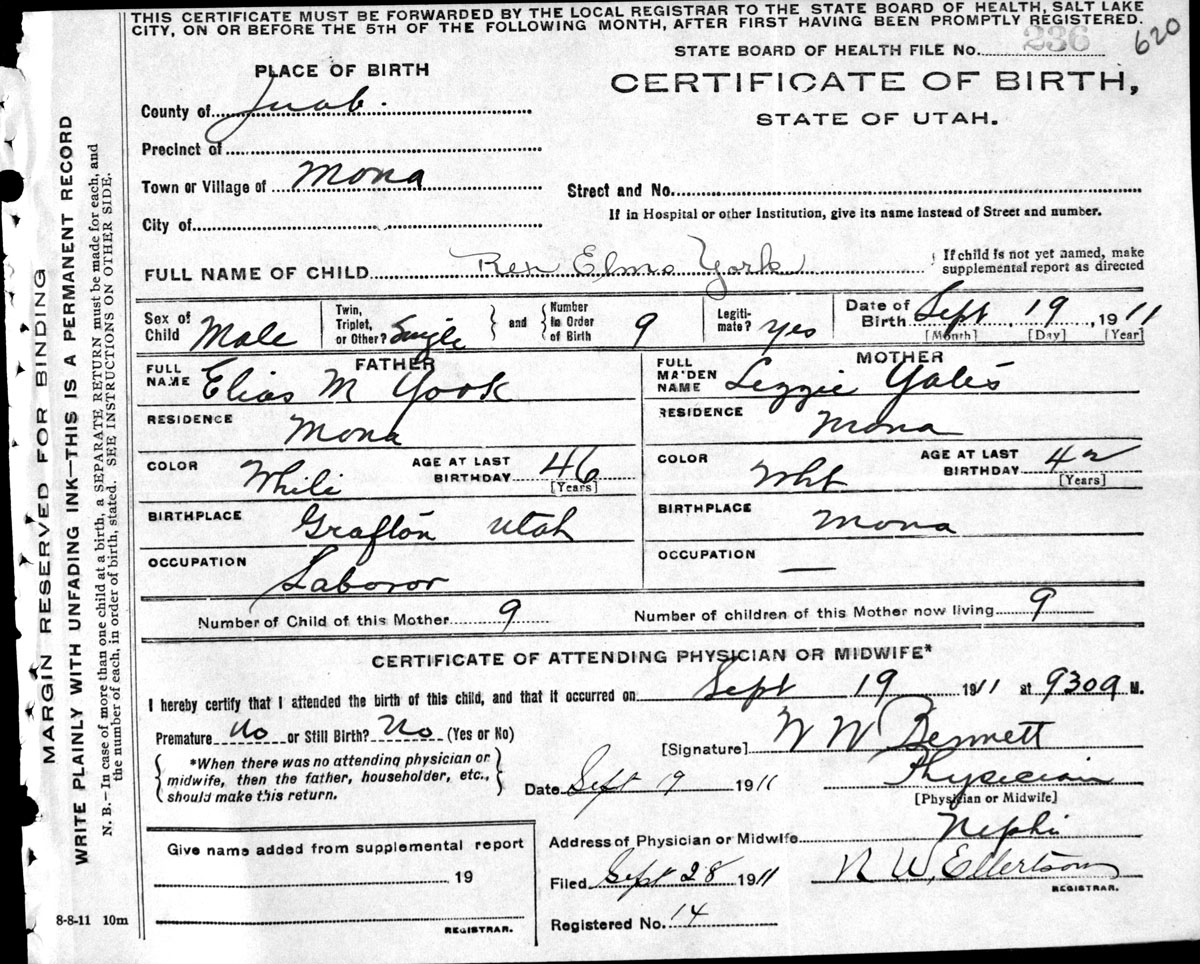 THIS CERTIFICATE MUST BE FORWARDED BY THE LOCAL REGISTRAR TO THE STATE BOARD OF HEALTH, SALT LAKE
CITY, ON OR BEFORE THE 5TH OF THE FOLLOWING MONTH, AFTER FIRST HAVING BEEN PROMPTLY REGISTERED.
620
STATE BOARD OF HEALTH FILE No. 236
PLACE OF BIRTH
CERTIFICATE OF BIRTH,
STATE OF UTAH.
County of Juab.
Precinct of
Town or Village of Mona
Street and No.
If in Hospital or other Institution, give its name instead of Street and number.
City of
FULL NAME OF CHILD Rex Elmo York
If child is not yet named, make
supplemental report as directed
Sex of
Child Male
Twin,
Triplet,
or Other? Single
and
Number
in Order
of Birth 9
Legiti-
mate? yes
Date of
Birth Sept 19, 1911
[Month] [Day] [Year]
FATHER
FULL
NAME Elias M York
RESIDENCE
Mona
COLOR White
AGE AT LAST
BIRTHDAY 46
[Years]
BIRTHPLACE
Grafton Utah
OCCUPATION
Laboror
MOTHER
FULL
MAIDEN
NAME Lezzie Yates
RESIDENCE
Mona
COLOR Wht
AGE AT LAST
BIRTHDAY 42
[Years]
BIRTHPLACE
Mona
OCCUPATION
—
Number of Child of this Mother 9
Number of children of this Mother now living 9
CERTIFICATE OF ATTENDING PHYSICIAN OR MIDWIFE*
I hereby certify that I attended the birth of this child, and that it occurred on Sept 19 1911 at 930a M.
Premature No or Still Birth? No (Yes or No)
*When there was no attending physician or
midwife, then the father, householder, etc.,
should make this return.
[Signature] W W Bennett
Date Sept 19 1911
Physician
[Physician or Midwife]
Address of Physician or Midwife Nephi
Give name added from supplemental report
19
REGISTRAR.
Filed Sept 28 1911
N W, Ellertson
REGISTRAR.
Registered No. 14
8-8-11 10m
MARGIN RESERVED FOR BINDING
WRITE PLAINLY WITH UNFADING INK—THIS IS A PERMANENT RECORD
N. B.—In case of more than one child at a birth, a SEPARATE RETURN must be made for each, and
the number of each, in order of birth, stated. SEE INSTRUCTIONS ON OTHER SIDE.